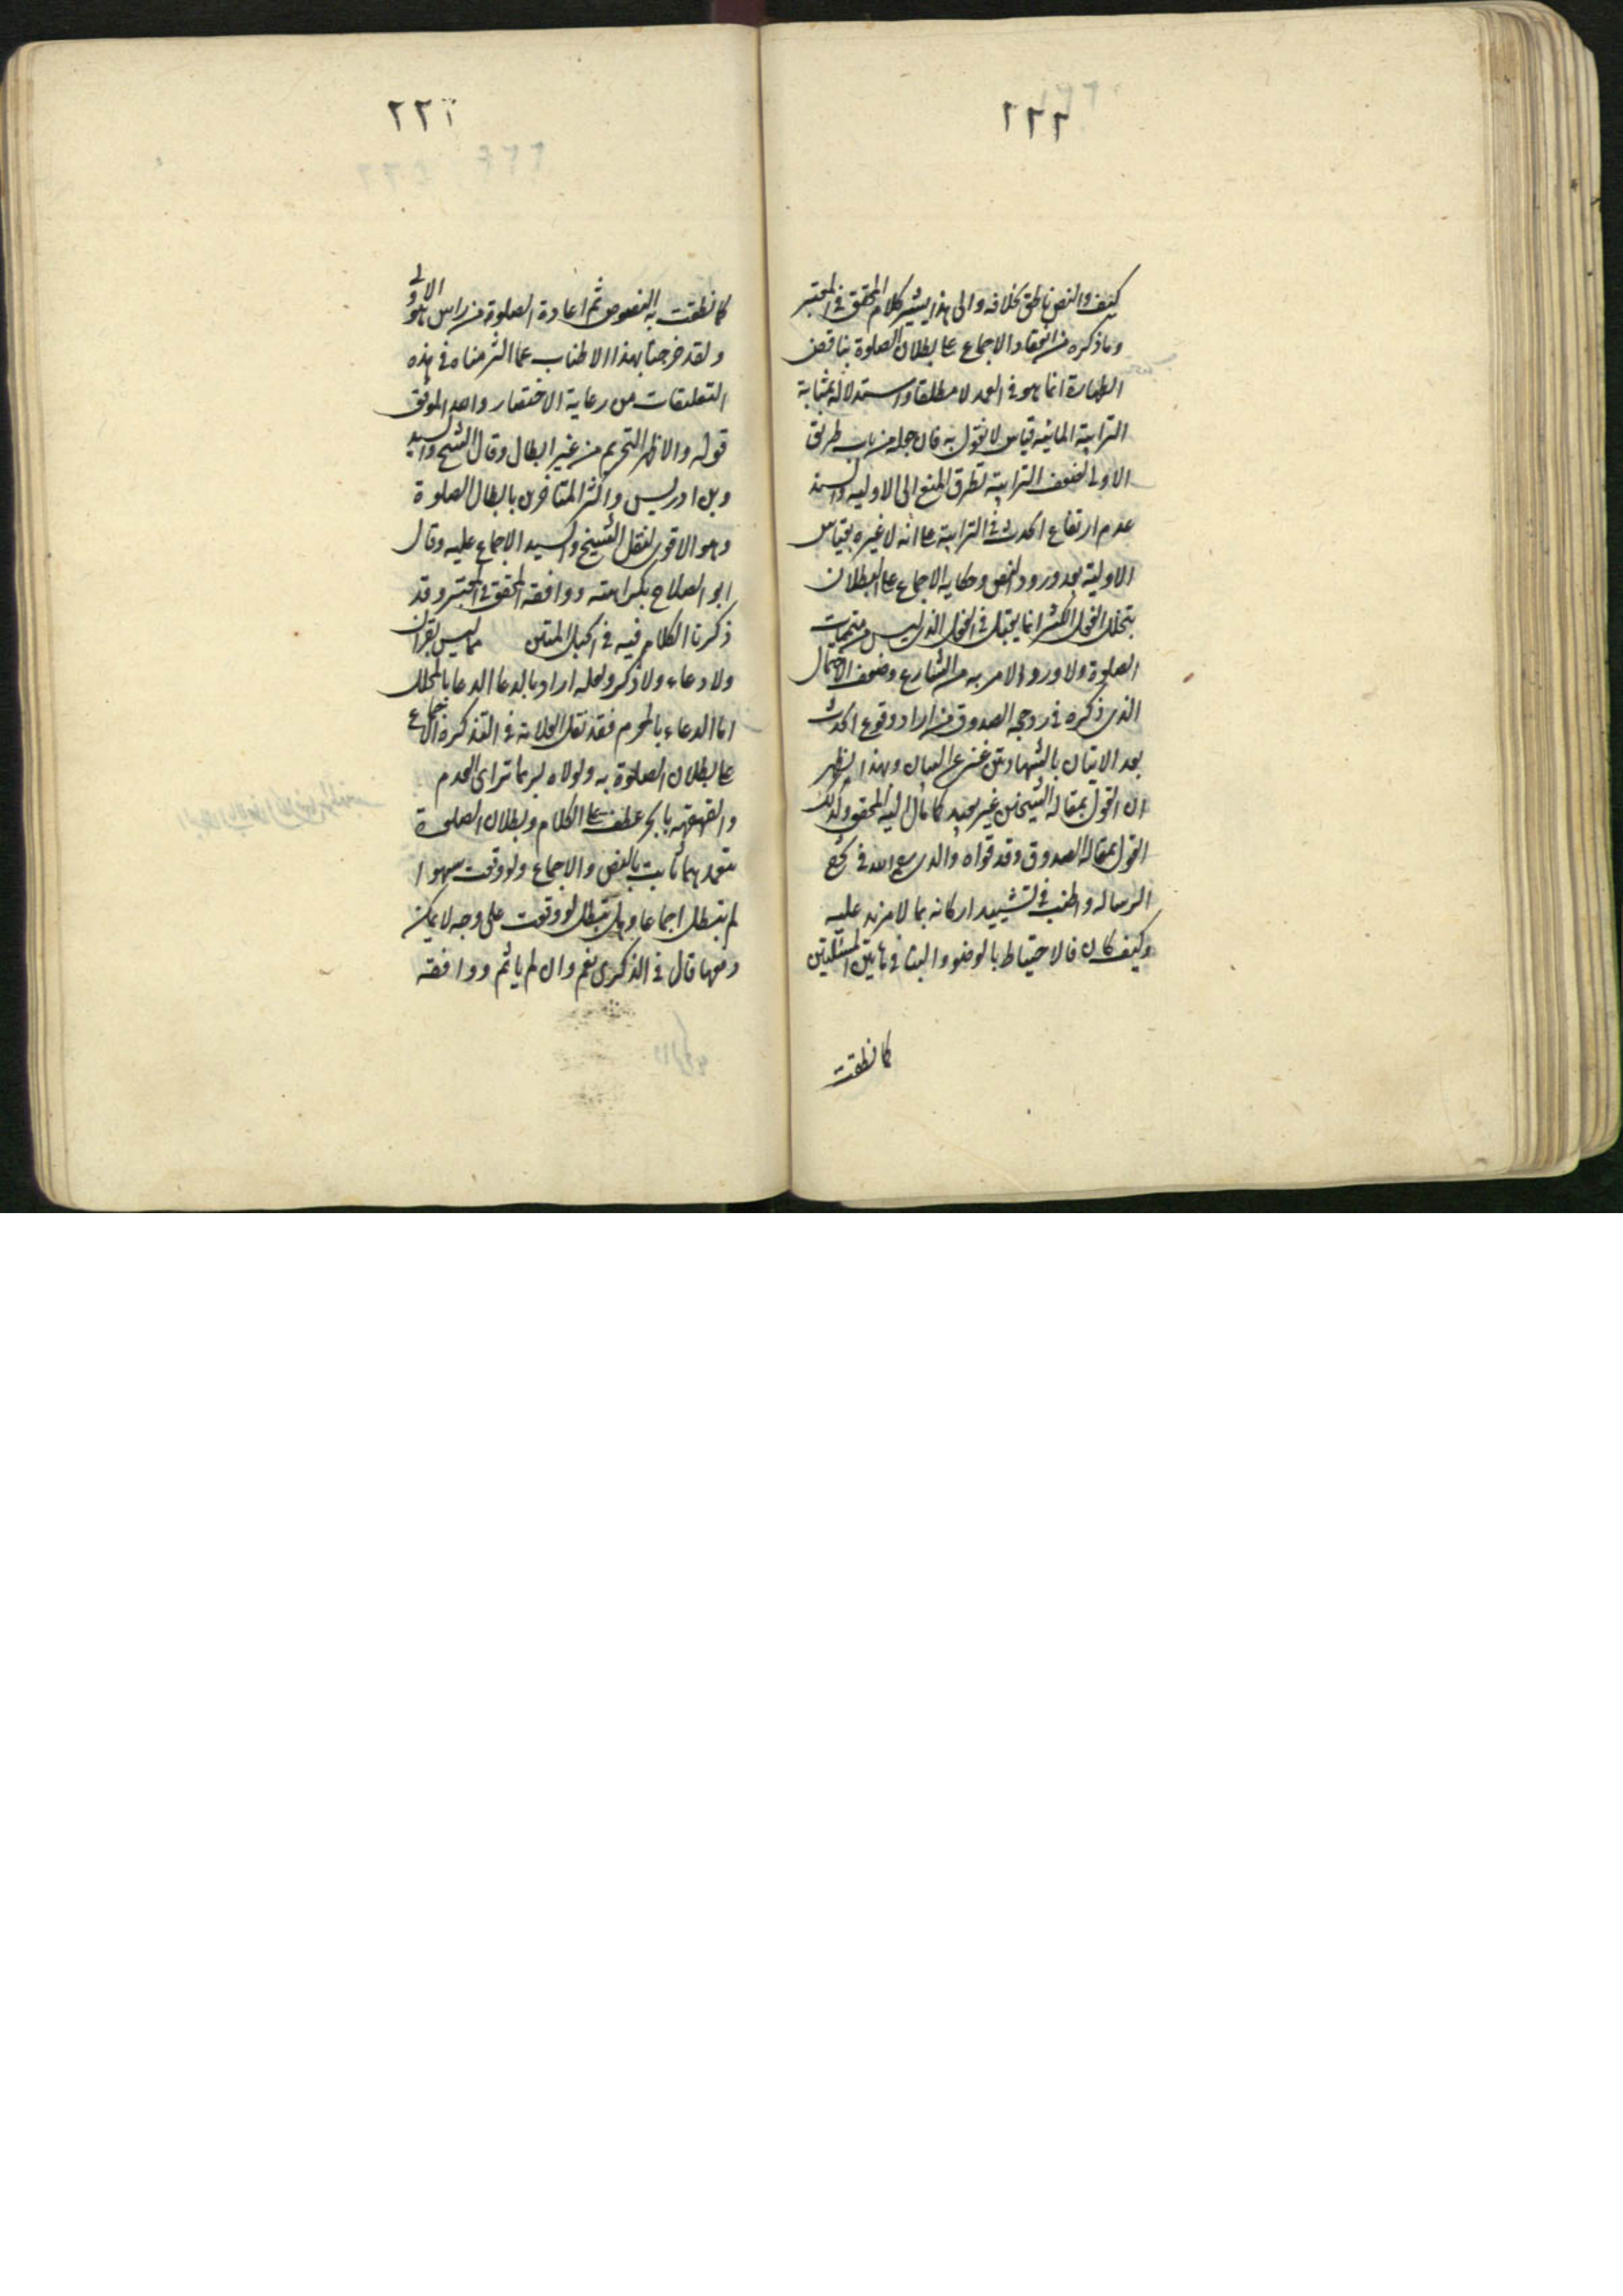 ٢٢٢
كيف والنص ناطق بخلافه والى هذا يشير كلام المحقق في المعتبر
وما ذكره من انعقاد الاجماع على بطلان الصلوة بناقض
الطهارة انما هو في العمد لا مطلقا واستدلاله بمثابة
الترابية المائيه قياس لا نقول به فان جعله من باب طريق
الاولى لضعف الترابية تطرق المنع الى الاوليه والسند
عدم ارتفاع الحدث في الترابية على انه لا عبره بقياس
الاولية بعد ورود النص وحكاية الاجماع على البطلان
بتخلل الفعل الكثير انما يقبل في الفعل الذي ليس من متممات
الصلوة ولا ورد الامر به من الشارع وضعف الاحتمال
الذي ذكره في روجه الصدوق من اراد وقوع الحدث
بعد الاتيان بالشهادتين غنى عن البيان وبهذا يظهر
ان القول بمقالة الشيخين غير بعيد كما مال اليه المحقق وكذلك
القول بمقالة الصدوق وقد قواه والدي رع الله في شرح
الرساله واطنب في تشييد اركانه بما لا مزيد عليه
وكيف كان فالاحتياط بالوضوء والبناء في هاتين المسئلتين
كما نطقت
٢٢٣
كما نطقت به النصوص ثم اعادة الصلوة من راس هو الاولى
ولقد خرجنا بهذا الاطناب عما التزمناه في هذه
التعليقات من رعاية الاختصار والله الموفق
قوله والاظهر التحريم من غير ابطال وقال الشيخ والسيد
وبن ادريس واكثر المتاخرين بابطال الصلوة
وهو الاقوى لنقل الشيخ والسيد الاجماع عليه وقال
ابو الصلاح بكراهته ووافقه المحقق في المعتبر وقد
ذكرنا الكلام فيه في الحبل المتين مما ليس بقران
ولا دعاء ولا ذكر ولعله اراد بالدعا الدعا بالمحلل
اما الدعاء بالمحرم فقد نقل العلامة في التذكرة الاجماع
على بطلان الصلوة به ولولاه لربما تراى العدم
والقهقهه بالجر عطف على الكلام وبطلان الصلوة
بتعمدهما ثابت بالنص والاجماع ولو وقعت سهوا
لم تبطل اجماعا وهل تبطل لو وقعت على وجه لا يمكن
دفعها قال في الذكرى نعم وان لم ياثم ووافقه